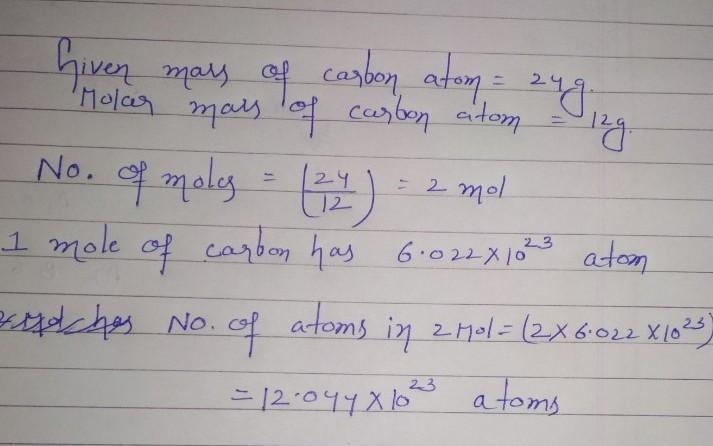 Given mass of carbon atom = 24g.
Molar mass of carbon atom = 12g.
No. of moles = (24/12) = 2 mol
1 mole of carbon has 6.022×10²³ atom
No. of atoms in 2 Mol = (2×6.022×10²³)
= 12.044×10²³ atoms